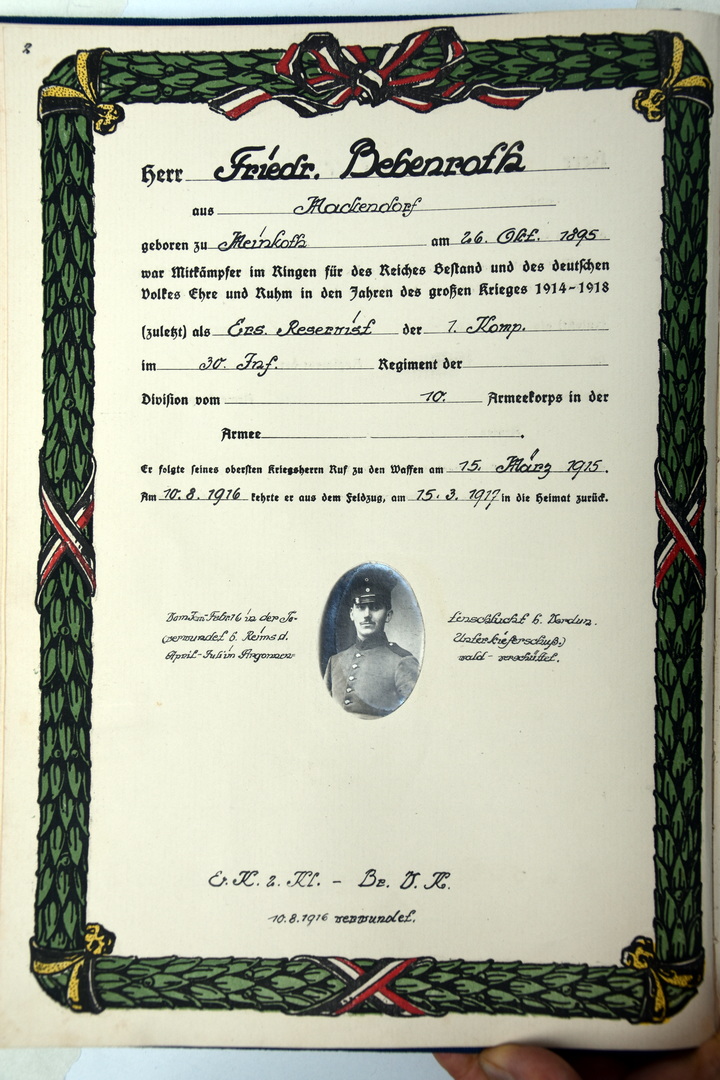 2
Herr Friedr. Bebenroth
aus Mackendorf
geboren zu Meinkoth am 26. Okt. 1895
war Mitkämpfer im Ringen für des Reiches Bestand und des deutschen
Volkes Ehre und Ruhm in den Jahren des großen Krieges 1914-1918
(zuletzt) als Ers. Reservist der 7. Komp.
im 30. Inf. Regiment der
Division vom 10. Armeekorps in der
Armee .
Er folgte seines obersten Kriegsherrn Ruf zu den Waffen am 15. März 1915.
Am 10.8.1916 kehrte er aus dem Feldzug, am 15.3.1917 in die Heimat zurück.
Vom Jan-Febr 16 in der To- tenschlucht b. Verdun.
(verwundet b. Reims d. Unterkieferschuß.)
April-Juli in Argonnen wald - verschüttet.
E.K. 2. Kl. - Br. V. K.
10.8.1916 verwundet.